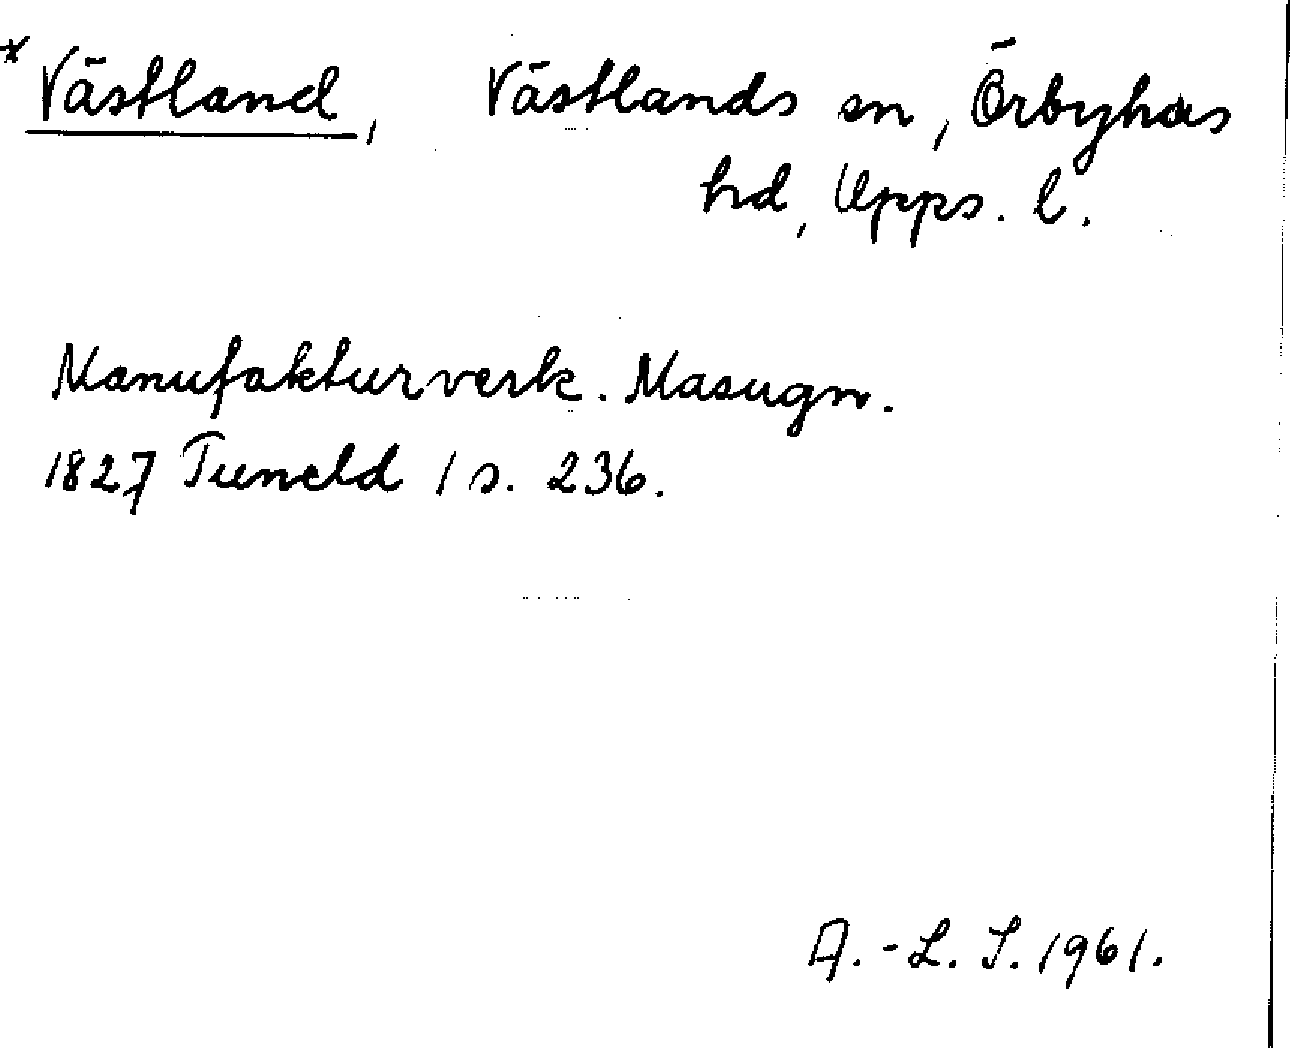 * Västland, Västlands sn, Örbyhus
hd, Upps. l.
Manufakturverk. Masugn.
1827 Tuneld 1 s. 236.
A.-L. S. 1961.